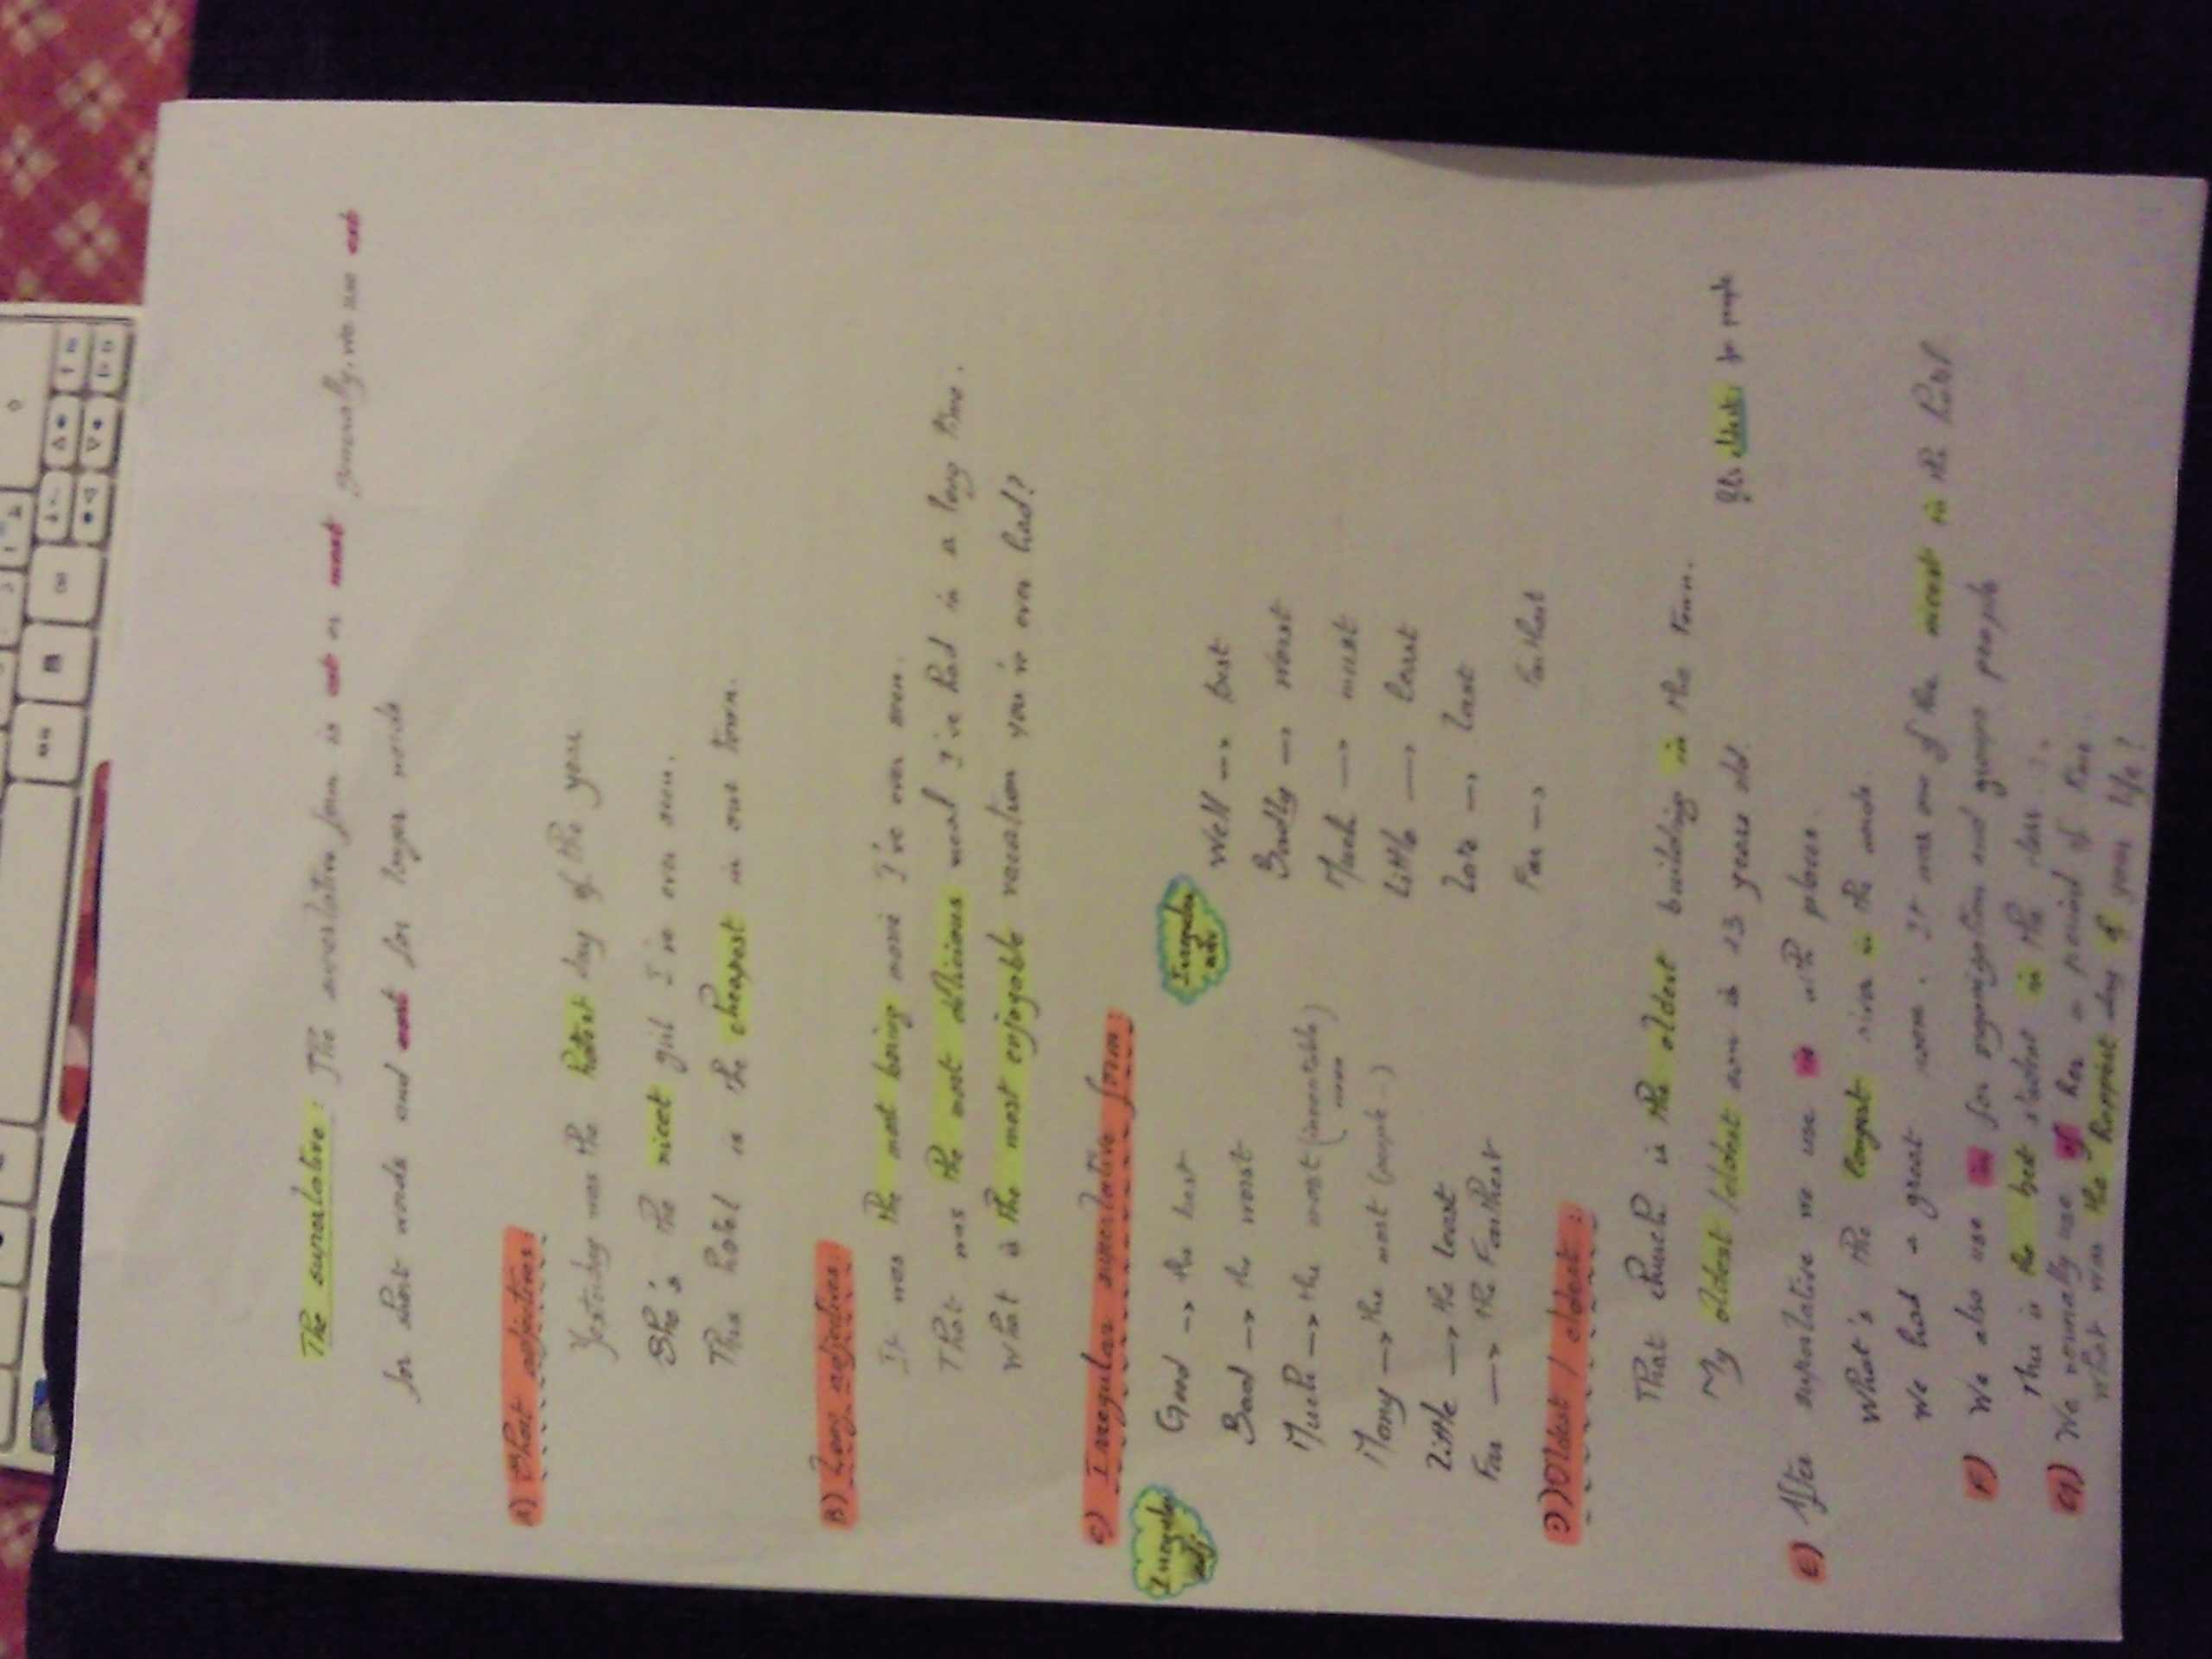 The superlative: The superlative form is est or most generally, we use est
for short words and most for longer words
A) Short adjectives:
Yesterday was the hottest day of the year
She's the nicest girl I've ever seen.
This hotel is the cheapest in our town.
B) Long adjectives:
It was the most boring movie I've ever seen.
That was the most delicious meal I've had in a long time.
What is the most enjoyable vacation you've ever had?
C) Irregular superlative form:
Irregular adj
Good → the best
Bad → the worst
Much → the most (uncountable)
Many → the most (people..)
Little → the least
Far → the Farthest
Irregular adv
Well → best
Badly → worst
Much → most
Little → least
Late → last
Far → farthest
D) Oldest / eldest:
That church is the oldest building in the town.
My oldest / eldest son is 13 years old.
for people
E) After superlative we use in with places.
What's the longest river in the world
We had a great room. It was one of the nicest in the hotel
F) We also use in for organization and groups people
This is the best student in the class
G) We normally use of for a period of time.
What was the happiest day of your life?